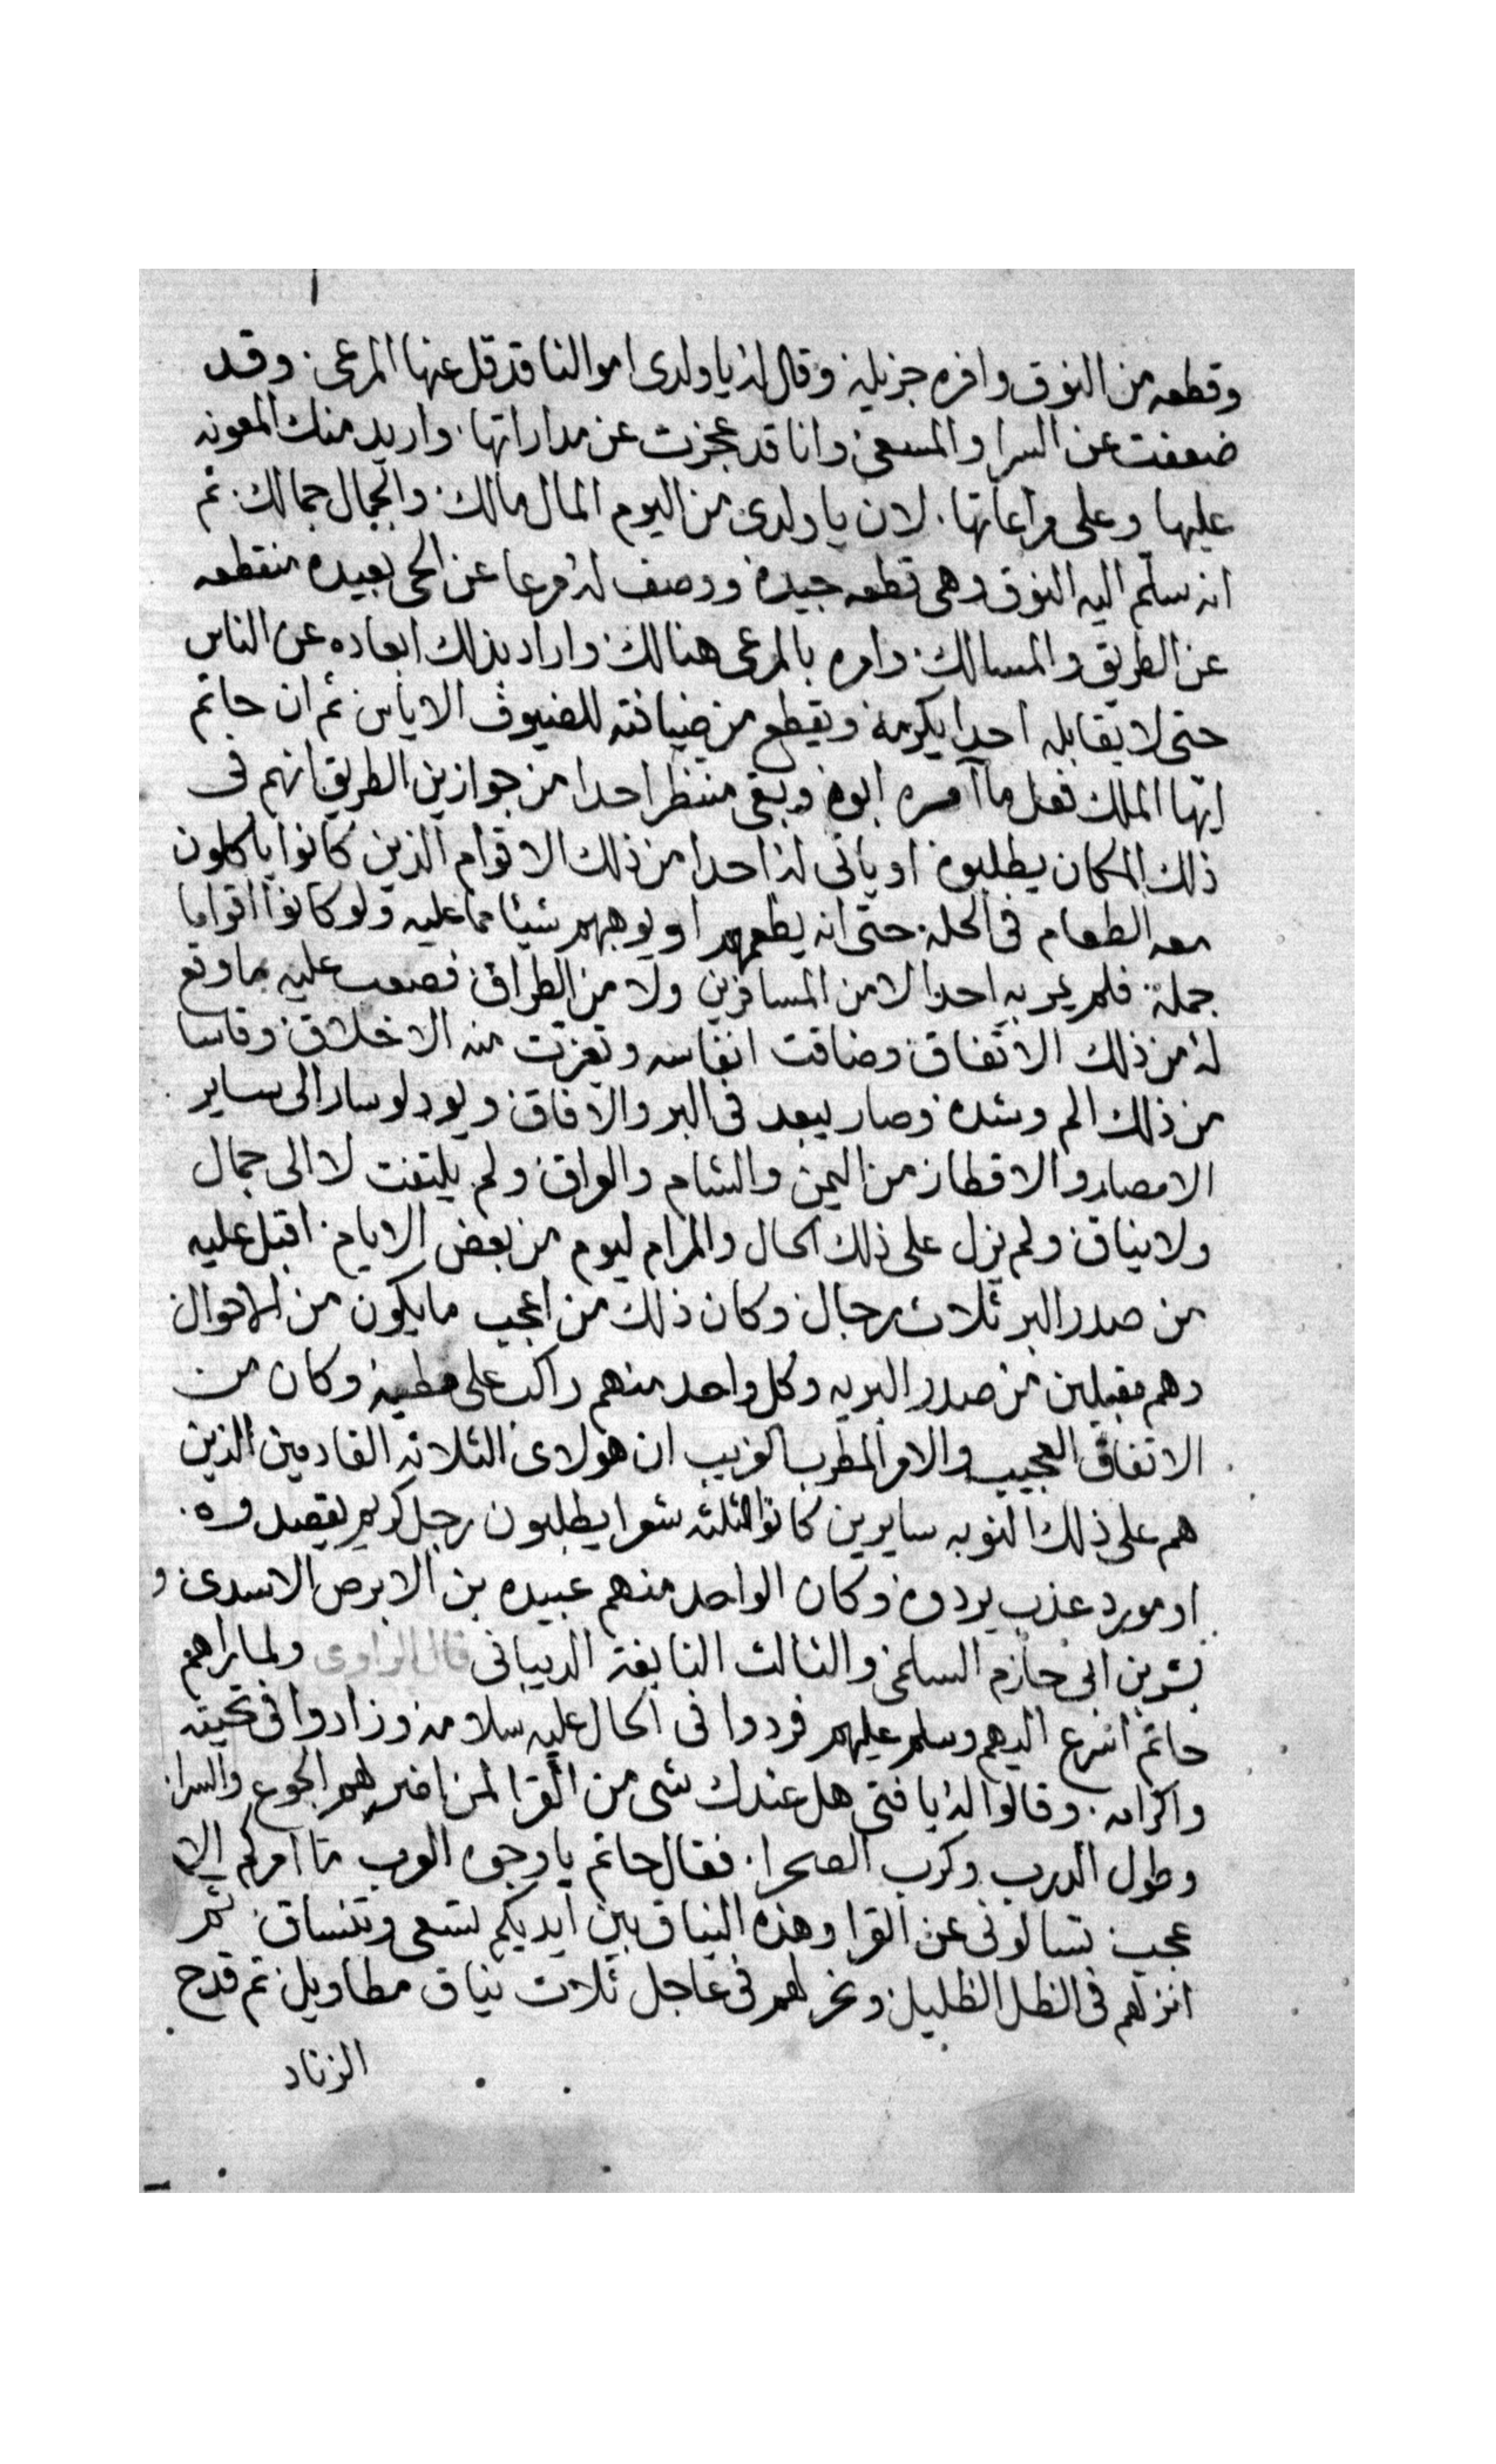 وقطعه من النوق وافره جزيله وقال له يا ولدى اموالنا قد قل عنها المرعى وقد
ضعفت عن السرا والمسعى وانا قد عجزت عن مداراتها واريد منك المعونه
عليها وعلى مراعاتها لان يا ولدى من اليوم المال مالك والجمال جمالك ثم
انه سلم اليه النوق وهى قطعه جيده ووصف له مرعا عن الحى بعيده منقطعه
عن الطريق والمسالك وامره بالمرعى هنالك واراد بذلك ابعاده عن الناس
حتى لا يقابله احدا يكرمه ويقطع من ضيافته للضيوف الاياس ثم ان حاتم
ايها الملك فعل ما آمره ابوه وبقى منتظر احدا من جوازين الطريق انهم فى
ذلك المكان يطلبوه او ياتى له احدا من ذلك الاقوام الذين كانوا ياكلون
معه الطعام فى الحله حتى انه يطعمهم او يوهبهم شيئا مما عليه ولو كانوا اقواما
جمله فلم يمر به احدا لا من المسافرين ولا من الطراق فصعب عليه ما وقع
له من ذلك الاتفاق وضاقت انفاسه وتعزت منه الاخلاق وقاسا
من ذلك الم وشده وصار يبعد فى البر والافاق ويود لو سار الى ساير
الامصار والاقطار من اليمن والشام والعراق ولم يلتفت لا الى جمال
ولا نياق ولم يزل على ذلك الحال والمرام ليوم من بعض الايام اقبل عليه
من صدر البر ثلاث رجال وكان ذلك من اعجب ما يكون من الاحوال
وهم مقبلين من صدر البريه وكل واحد منهم راكب على مطيه وكان من
الاتفاق العجيب والامر المطرب الغريب ان هولاى الثلاثه القادمين الذين
هم على ذلك النوبه سايرين كانوا ثلثه شعرا يطلبون رجل كريم يقصدوه
او مورد عذب يردوه وكان الواحد منهم عبيده بن الابرص الاسدى و
بشر بن ابى حازم السلمى والثالث النابغة الدبيانى قال الراوى ولما راهم
حاتم اسرع اليهم وسلم عليهم فردوا فى الحال عليه سلامه وزادوا فى تحيته
واكرامه وقالوا له يا فتى هل عندك شى من القرا لمن اضر بهم الجوع والسرا
وطول الدرب وكرب الصحرا فقال حاتم يا وجوه العرب ما امركم الا
عجب تسالونى عن القرا وهذه النياق بين ايديكم تسعى وتنساق ثم
انزلهم فى الظل الظليل ونحر لهم فى عاجل ثلاث نياق مطاويل ثم قدح
الزناد